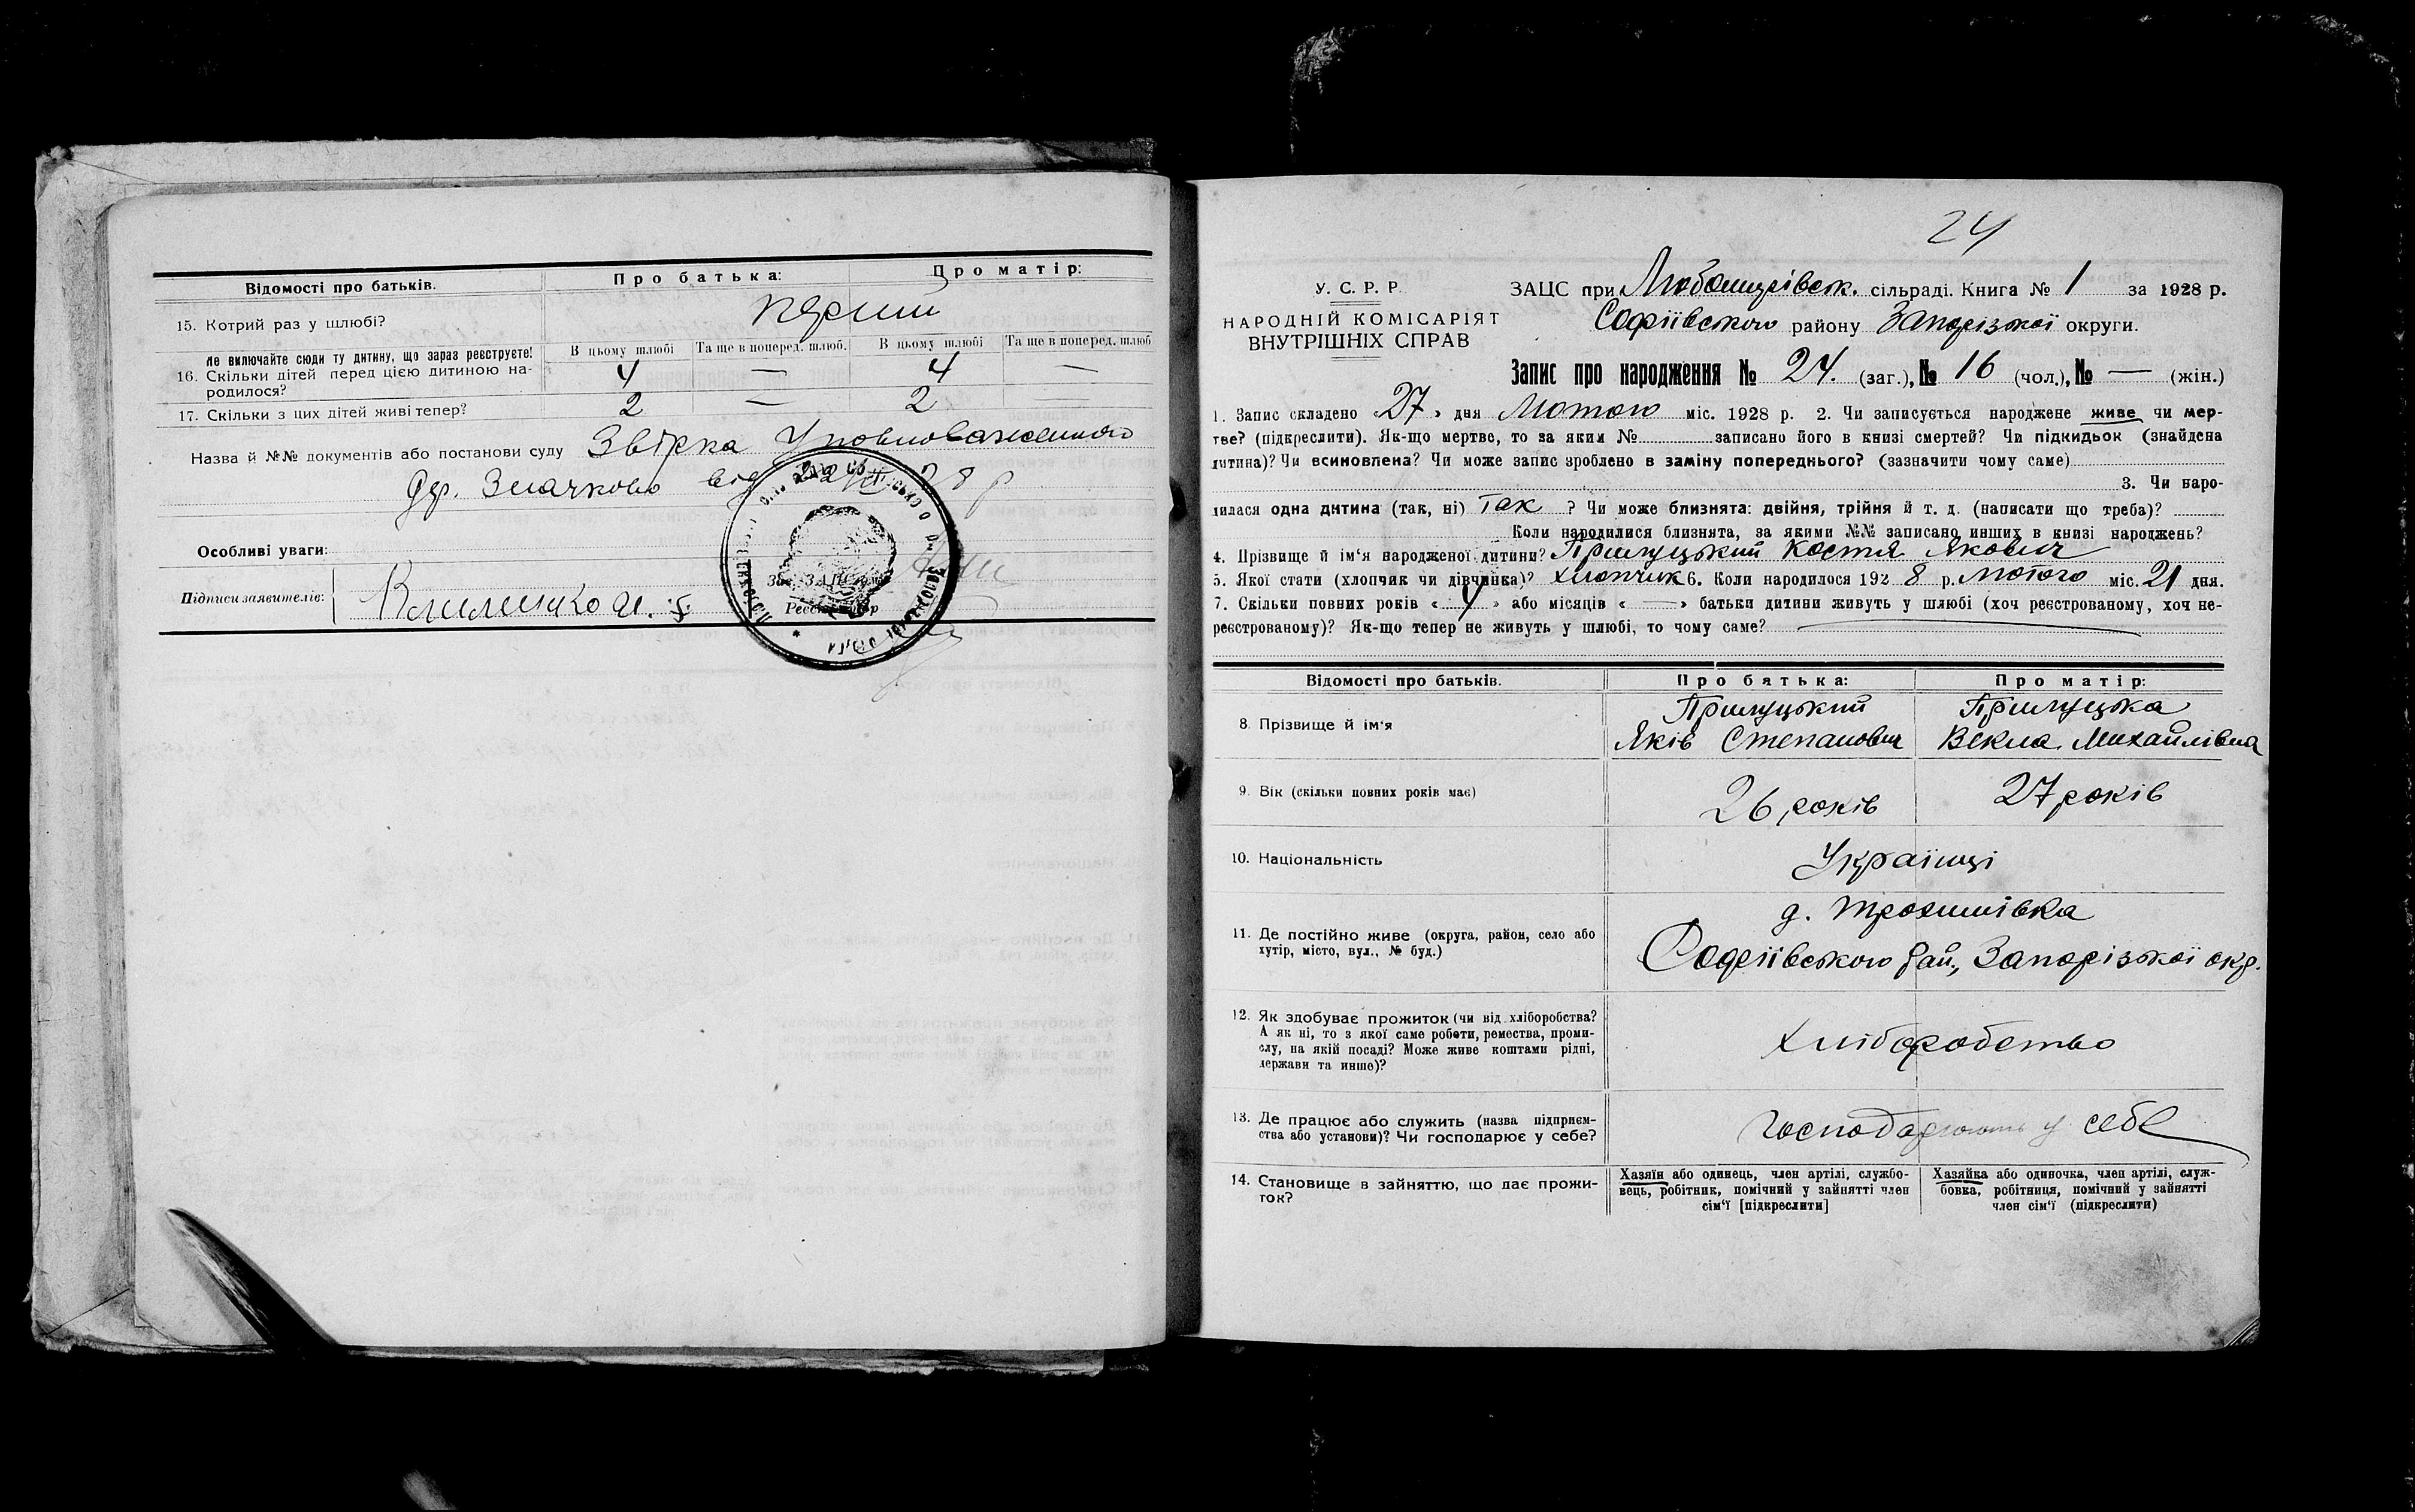 Відомості про батьків.
Про батька:
Про матір:
15. Котрий раз у шлюбі?
перший
Не включайте сюди ту дитину, що зараз реєструєте!
16. Скільки дітей перед цією дитиною на-
родилося?
В цьому шлюбі
Та ще в поперед. шлюб.
В цьому шлюбі
Та ще в поперед. шлюб
4 — 4 —
17. Скільки з цих дітей живі тепер?
2 — 2 —
Назва й №№ документів або постанови суду Звірка Уповноваженного
Др. Значково від 22/II 28 р
Особливі уваги:
Підписи заявителів:
24
У. С. Р. Р.
НАРОДНІЙ КОМІСАРІЯТ
ВНУТРІШНІХ СПРАВ
ЗАЦС при Любомирівськ. сільраді. Книга № 1 за 1928 р.
Софіївського району Запорізької округи.
Запис про народження № 24. (заг.), № 16 (чол.), № — (жін.)
1. Запис складено «27» дня Лютого міс. 1928 р. 2. Чи записується народжене живе чи мер-
тве? (підкреслити). Як-що мертве, то за яким № записано його в книзі смертей? Чи підкидьок (знайдена
дитина)? Чи всиновлена? Чи може запис зроблено в заміну попереднього? (зазначити чому саме)
3. Чи наро-
дилася одна дитина (так, ні) так ? Чи може близнята: двійня, трійня й т. д. (написати що треба)?
Коли народилися близнята, за якими №№ записано инших в книзі народжень?
4. Прізвище й ім'я народженої дитини? Прилуцький Костя Якович
5. Якої стати (хлопчик чи дівчинка)? хлопчик 6. Коли народилося 1928 р. Лютого міс. 21 дня.
7. Скільки повних років «4» або місяців «—» батьки дитини живуть у шлюбі (хоч реєстрованому, хоч не-
реєстрованому)? Як-що тепер не живуть у шлюбі, то чому саме?
Відомості про батьків.
Про батька:
Про матір:
8. Прізвище й ім'я
Прилуцький
Яків Степанович
Прилуцька
Векла Михайлівна
9. Вік (скільки повних років має)
26 років
27 років
10. Національність
Українці
11. Де постійно живе (округа, район, село або
хутір, місто, вул., № буд.)
д. Трохимівка
Софіївського Рай., Запорізької окр.
12. Як здобуває прожиток (чи від хліборобства?
А як ні, то з якої саме роботи, ремества, проми-
слу, на якій посаді? Може живе коштами рідні,
держави та инше)?
Хліборобство
13. Де працює або служить (назва підприєм-
ства або установи)? Чи господарює у себе?
господарюють у себе
14. Становище в зайняттю, що дає прожи-
ток?
Хазяїн або одинець, член артілі, службо-
вець, робітник, помічний у зайнятті член
сім'ї [підкреслити]
Хазяйка або одиночка, член артілі, служ-
бовка, робітниця, помічний у зайнятті
член сім'ї (підкреслити)